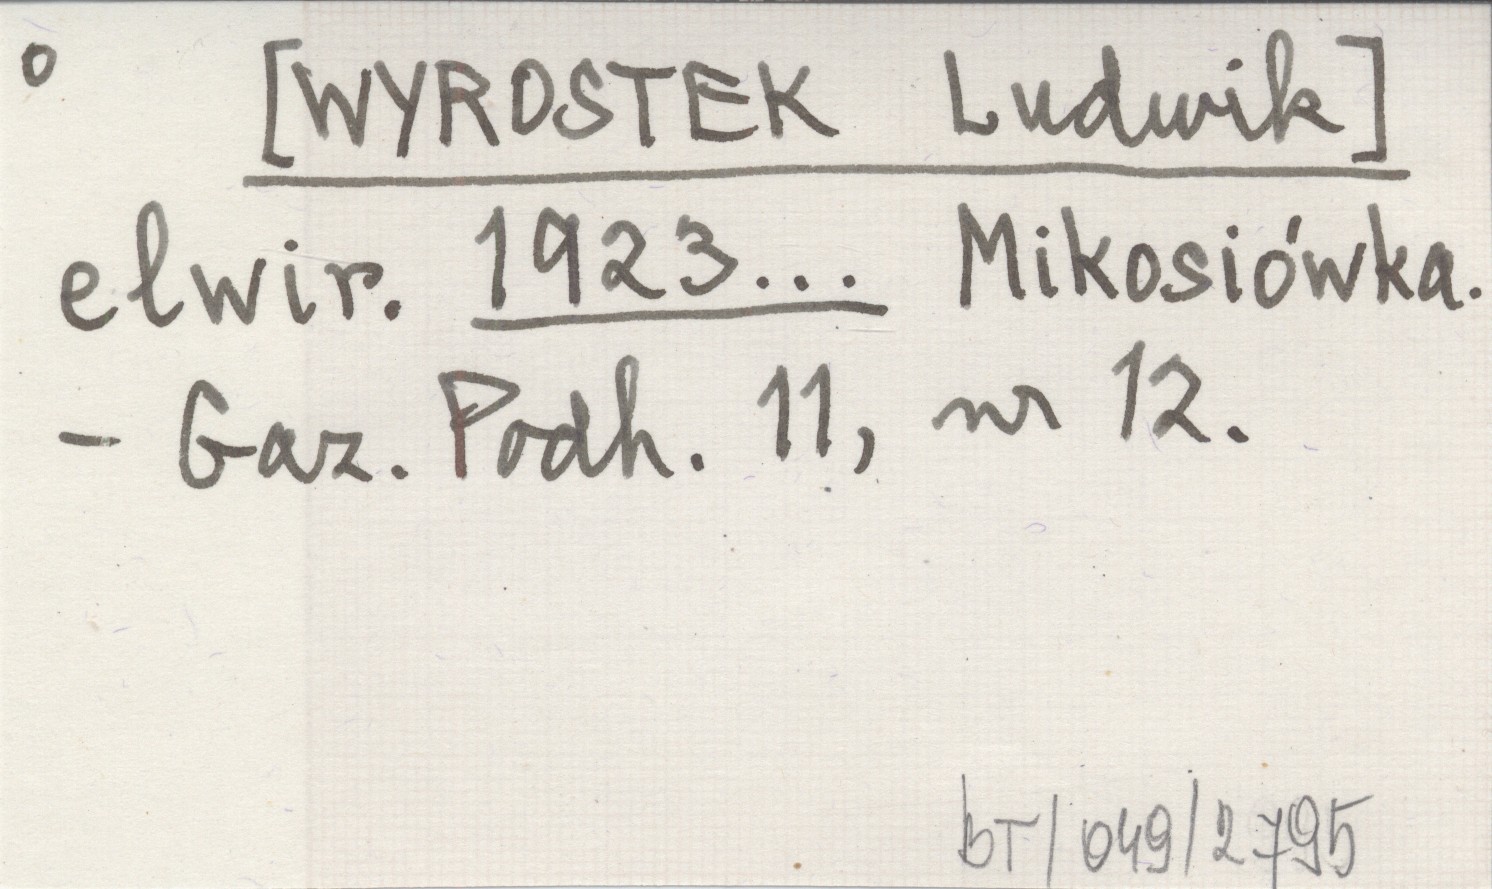 o [WYROSTEK Ludwik]
elwir. 1923... Mikosiówka.
- Gaz. Podh. 11, nr 12.
bT/049/2795